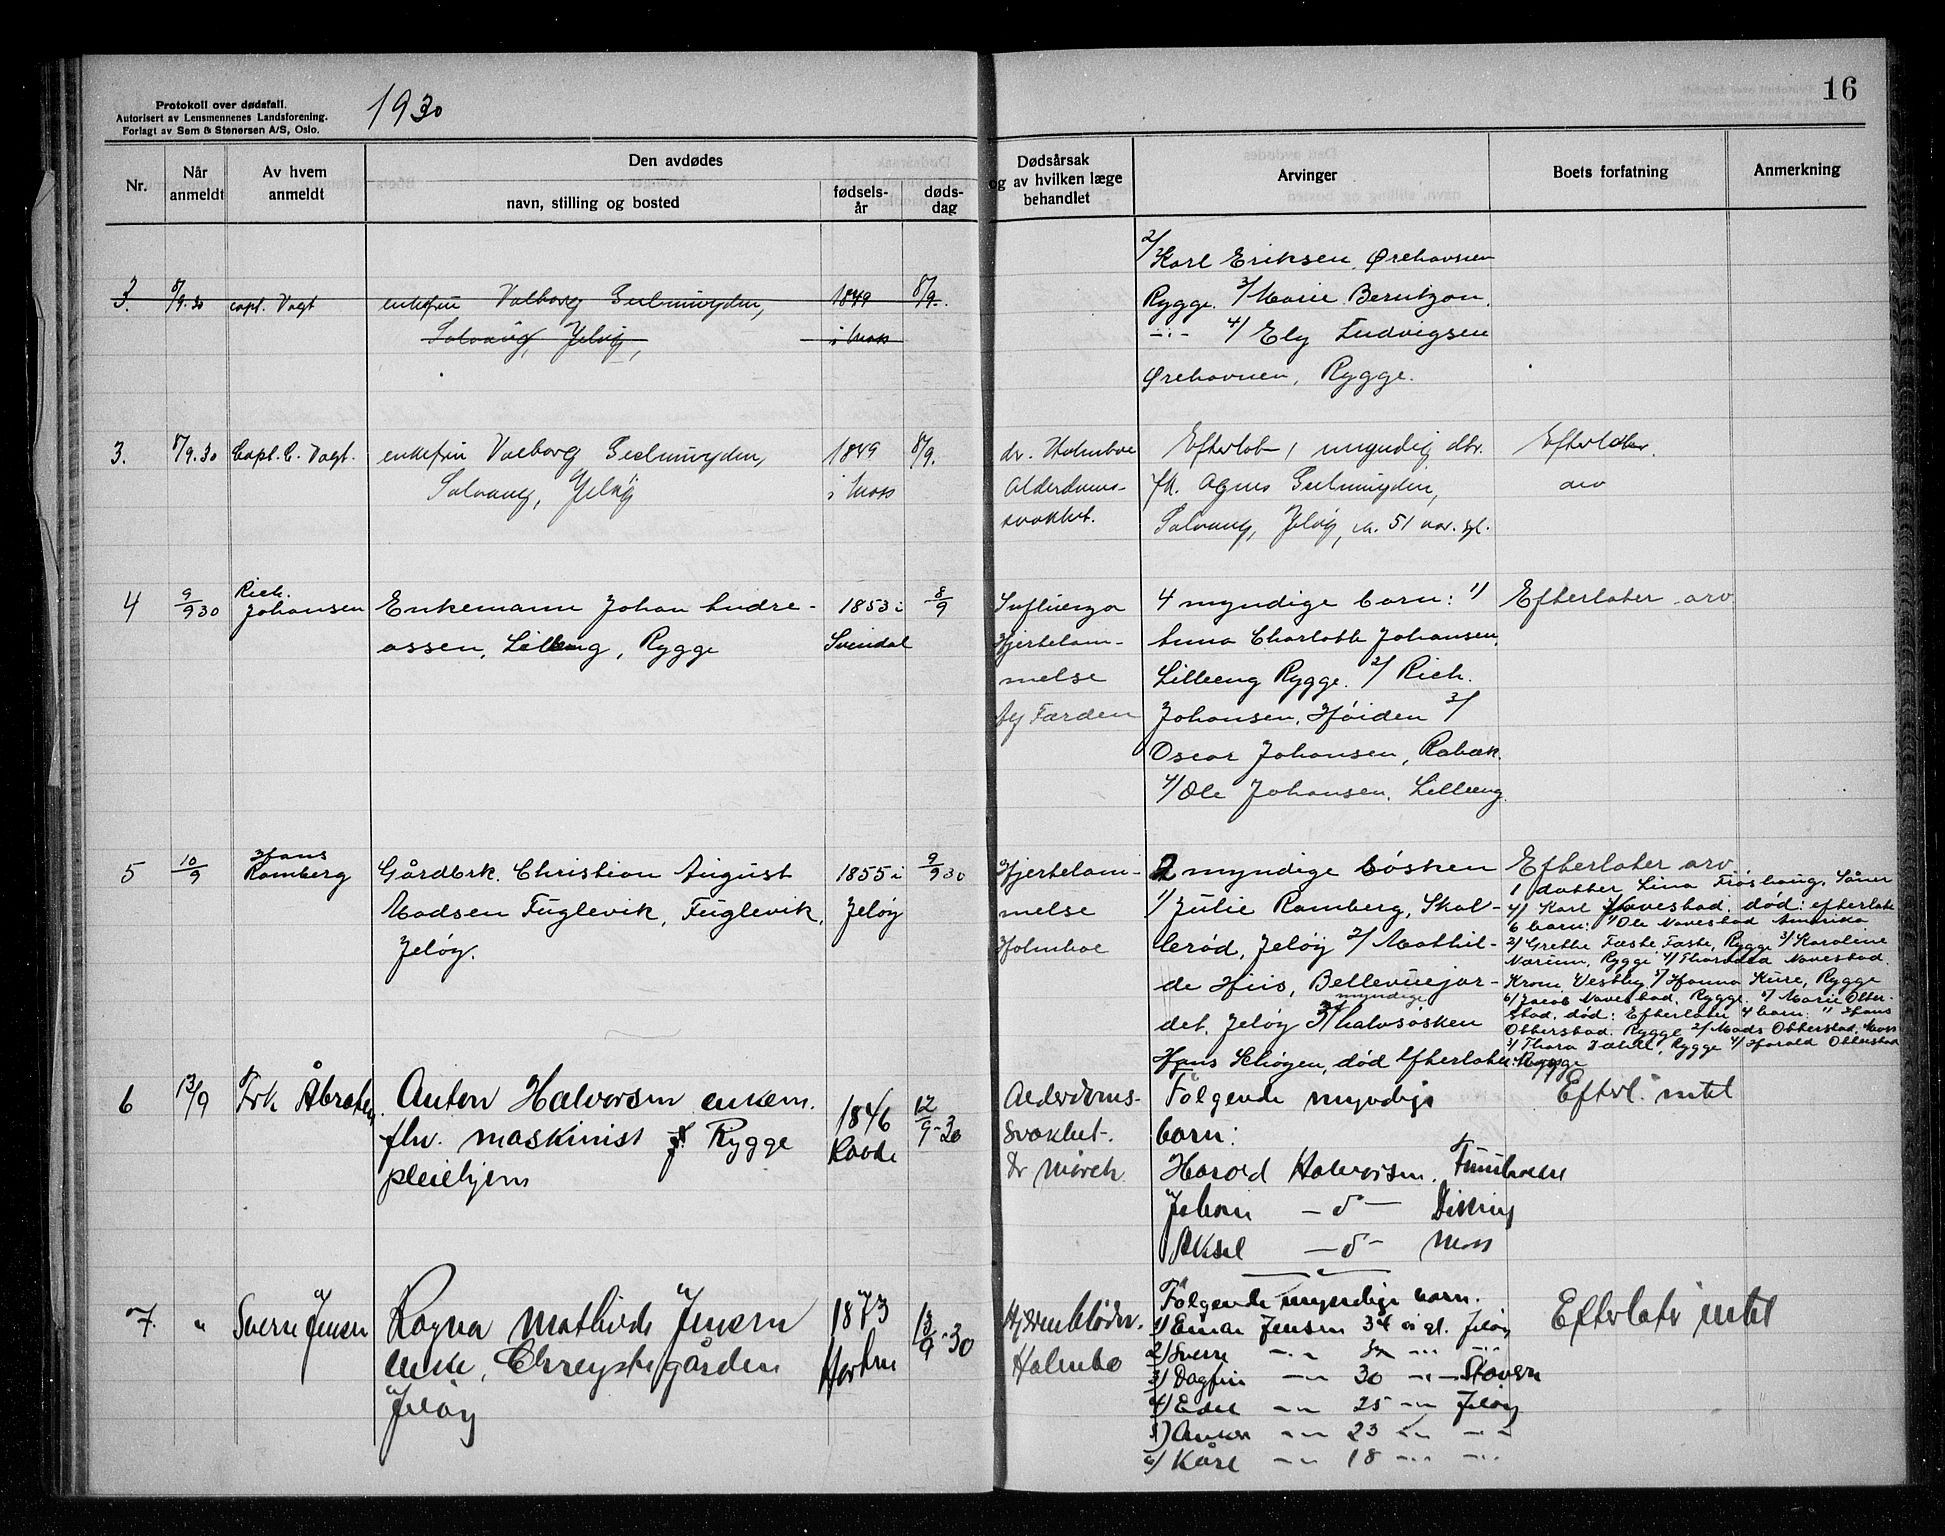 Protokoll over dødsfall.
Autorisert av Lensmennenes Landsforening.
Forlagt av Sem & Stenersen A/S, Oslo.
1930
16
Nr.
Når anmeldt
Av hvem anmeldt
Den avdødes
navn, stilling og bosted
fødselsår
dødsdag
Dødsårsak
og av hvilken læge
behandlet
Arvinger
Boets forfatning
Anmerkning
2/ Karl Eriksen, Ørehavnen
Rygge. 3/ Marie Berntzon.
-"- 4/ Ely Ludvigsen
Ørehavnen, Rygge.
3. 8/9.30 capt. Vogt enkefru Valborg Geelmuyden, 1849 8/9.
Solvang, Jeløy, i Moss
3. 8/9.30 Capt. C. Vogt. enkefru Valborg Geelmuyden, 1849 8/9.
Solvang, Jeløy i Moss
dr. Holmboe
Alderdoms-
svakhet.
Efterlot 1 myndig dtr.
fk. Agnes Geelmuyden,
Solvang, Jeløy, ca. 51 aar. gl.
Efterlater
arv
4 9/9 30 Rich. Johansen Enkemann Johan Andre- 1853 i 8/9
assen, Lilleeng, Rygge Svindal
Influenza
Hjertelam-
melse
Færden
4 myndige barn: 1/
Anna Charlotte Johansen,
Lilleeng Rygge. 2/ Rich.
Johansen, Høiden 3/
Oscar Johansen, Rabæk.
4/ Ole Johansen, Lilleeng.
Efterlater arv
5 10/9 Hans Ramberg Gårdbrk. Christian August 1855 i 9/9 30
Madsen Fuglevik, Fuglevik, Jeløy
Jeløy.
Hjertelam-
melse
Holmboe
2 myndige søsken
1/ Julie Ramberg, Skal-
lerød, Jeløy 2/ Mathil-
de Hiis, Bellevuejor-
det, Jeløy 3/ myndige halvsøsken
Hans Schøyen, død Efterlater:
Efterlater arv
1 datter Lina Frøshaug, Såner
4/ Karl Navestad, død: efterlate
6 barn: 1/ Ole Navestad Amerika
2/ Grethe Fæste Fæste, Rygge 3/ Karoline
Nærum, Rygge 4/ Thorvald Navestad
Krom Vestby 5/ Hanna Kure, Rygge
6/ Jacob Navestad, Rygge. 5/ Marie Otter-
stad, død: Efterlater 4 barn: 1/ Hans
Otterstad, Rygge 2/ Mads Otterstad, Moss
3/ Thora, Rygge 4/ Harald Otterstad
Rygge
6 13/9 Frk Anton Halvorsen enkem. 1846 12/9-30
fhv. maskinist Rygge Raade
pleiehjem
Alderdoms-
svakhet.
Dr Mørch
Følgende myndige
barn:
Harald Halvorsen,
Johan -d-
Aksel -d- Moss
Efterl. intet
7. " Sverre Jensen Ragna Mathilde Jensen 1873 13/9-30
enke, Horten
Jeløy
Holmbo
Følgende myndige barn.
1) Einar Jensen 34 år gl. Jeløy
2) Sverre -"- -"- -"-
3) Dagfin -"- 30 -"- Stavern
4) Edel -"- 25 -"- Jeløy
5) -"- 23 -"- -"-
6) Kåre -"- 18 -"- -"-
Efterlater intet